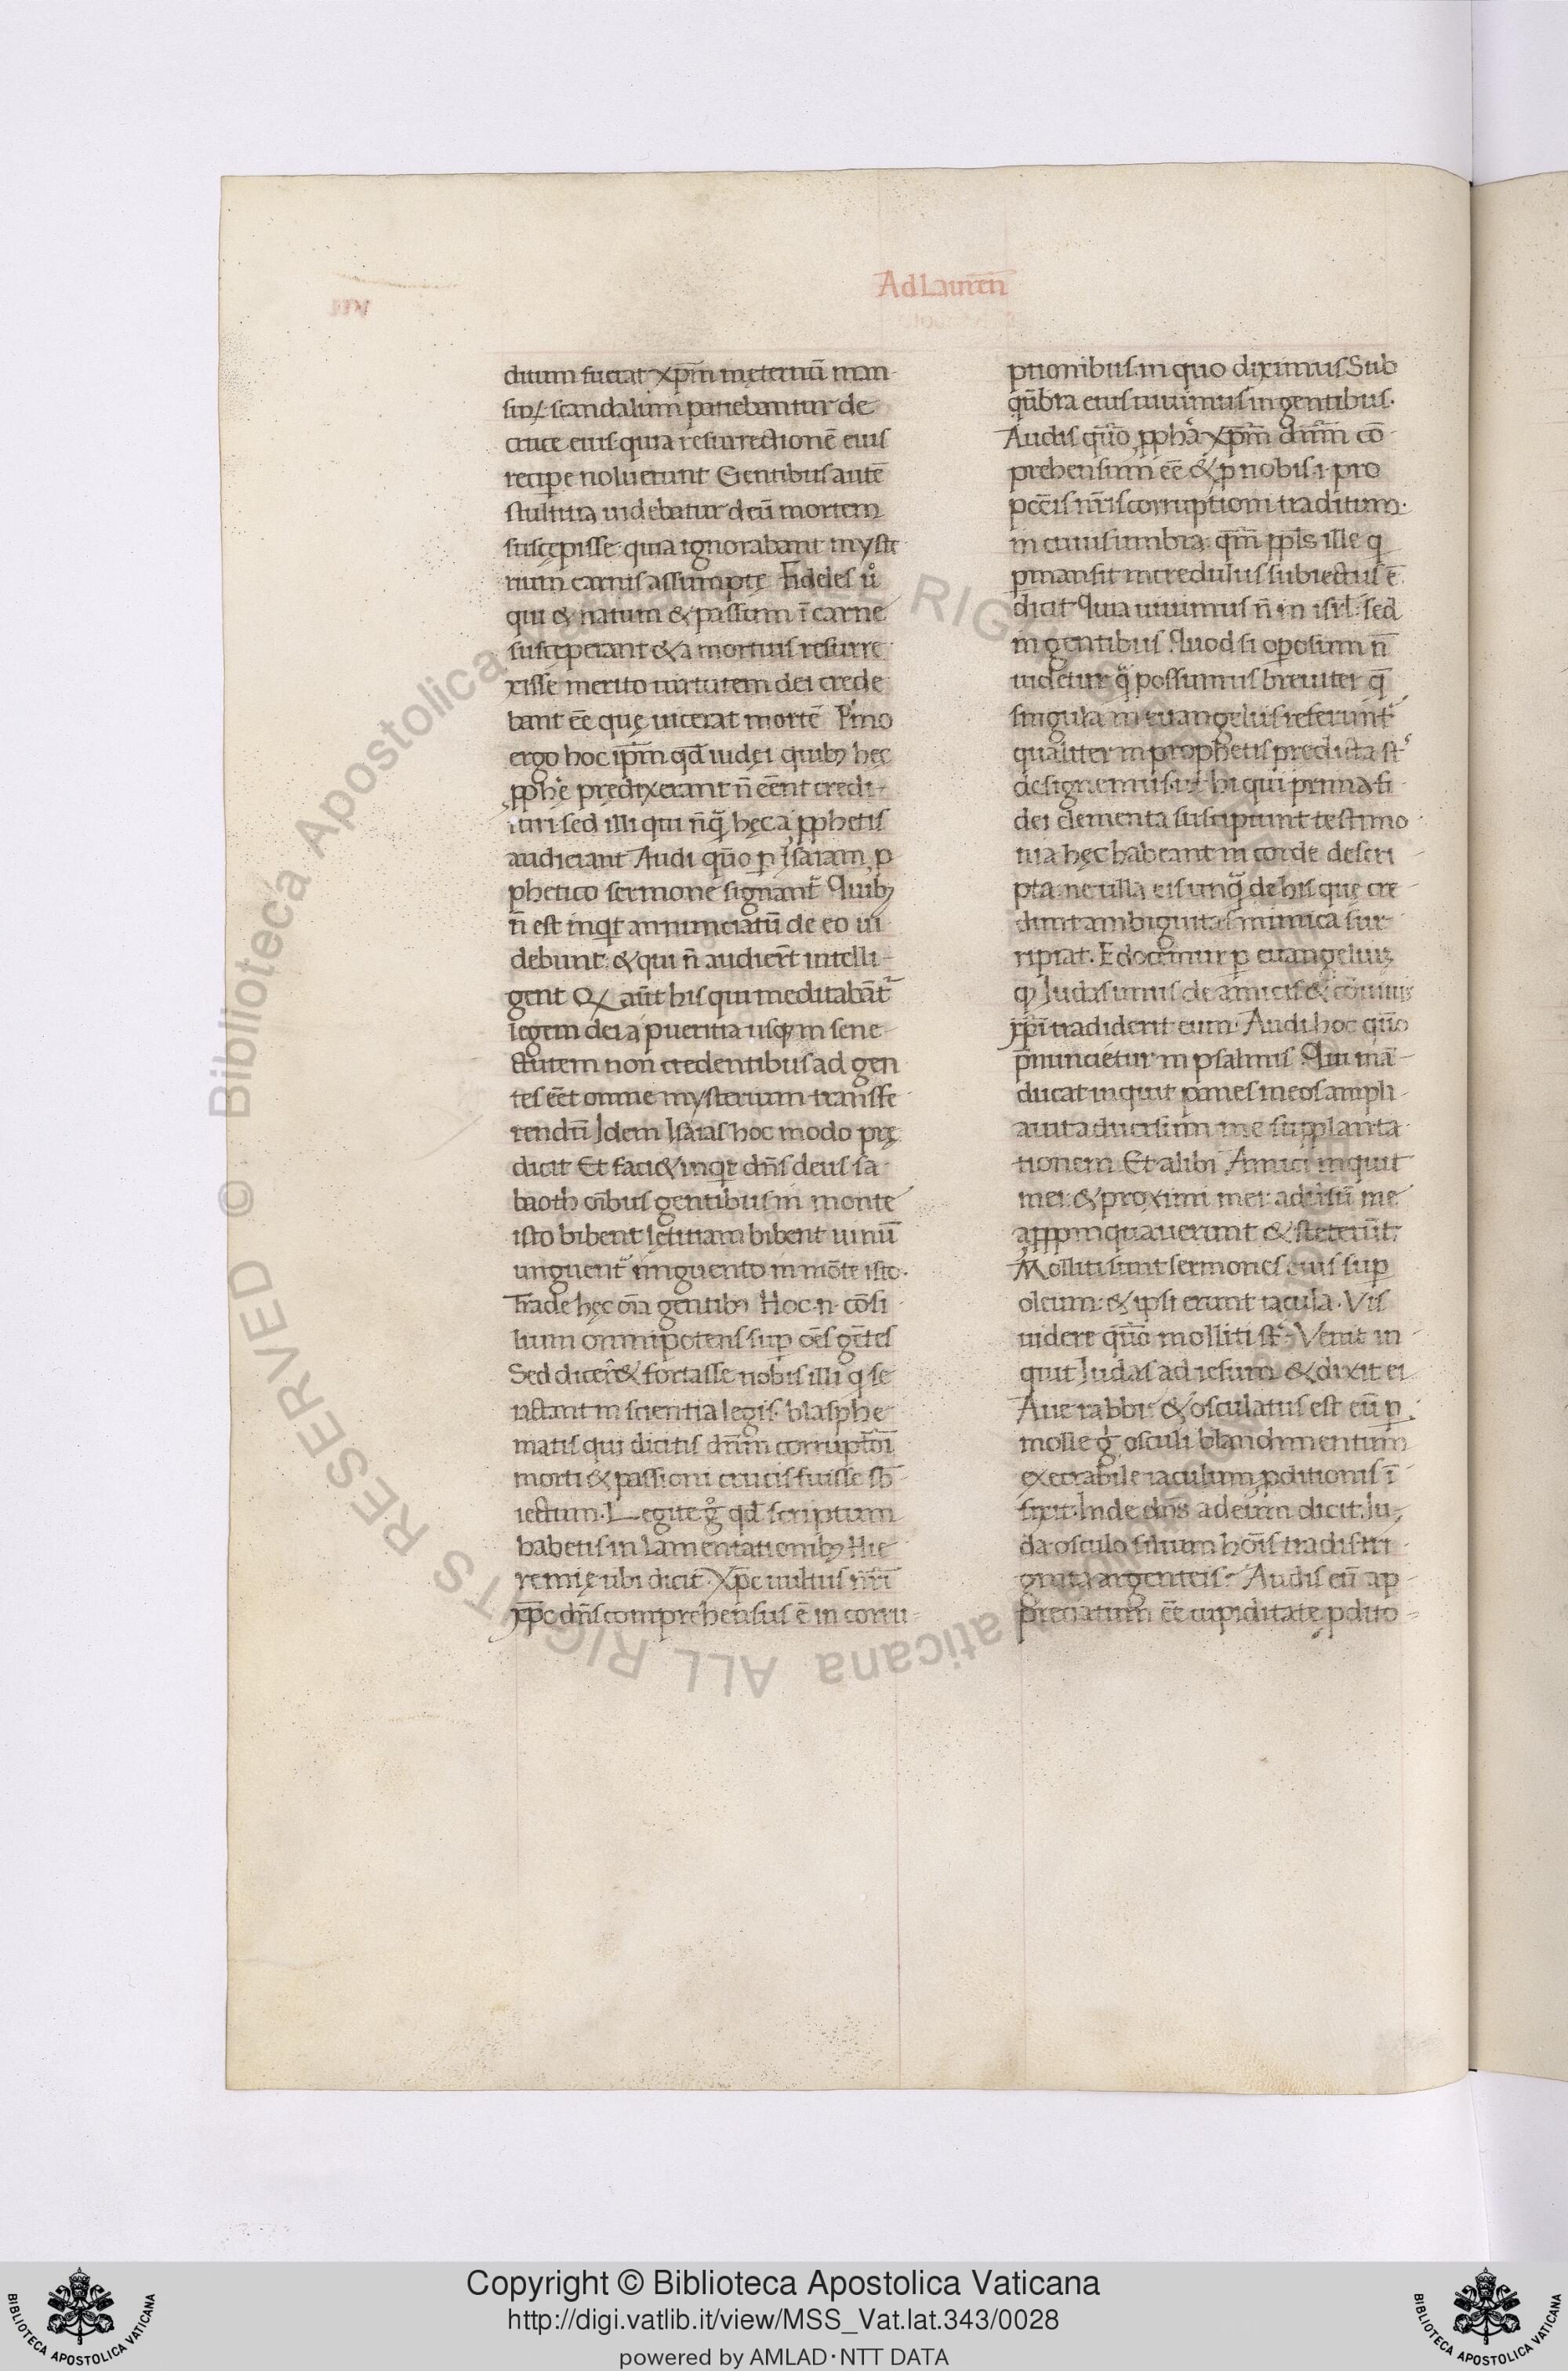 Ad Laurēn
ditum fuerat xp̄m in ęternū man
surū scandalum patiebantur de
cruce eius quia resurrectionē eius
recipe noluerunt Gentibus autē
stultitia uidebatur deū mortem
suscępisse quia ignorabant myste
rium carnis assumptę Fideles ů
qui & natum & passum ī carne
susceperant & a mortuis resurre
xisse merito uirtutem dei crede
bant eē quę uicerat mortē P̲mo
ergo hoc ip̄m qd̄ iudęi quibꝫ hęc
ꝓphę̄ prędixerant n̄ eēnt credi
turi sed illi qui nq̄ hęc a ꝓphetis
audierant Audi quō ꝑ Isaiam ꝓ
phetico sermone signant᷑ Quibꝫ
n̄ est inqt annunciatū de eo ui
debunt & qui n̄ audiert̄ intelli
gent Qꝫ aūt his qui meditabāt᷑
legem dei a pueritia usqꝫ in sene
ctutem non credentibus ad gen
tes eēt omne mysterium transfe
rendū Idem Isaias hoc modo prę
dicit Et faci& inqt dn̄s deus sa
baoth oībus gentibus in monte
isto bibent lętitiam bibent uinū
unguent᷑ unguento in mōte isto.
Trade hęc oīa gentibꝫ Hoc .n. cōsi
lium omnipotens suꝑ oēs gētes
Sed dicer& fortasse nobis illi q̇ se
iactant in scientia legis blasphe
matis qui dicitis dn̄m corruptōī
morti & passioni crucis fuisse sb̄
iectum. Legite g̊ qd̄ scriptum
habetis in lamentationibꝫ Hie
remię ubi dicit Xp̄c uultus nr̄i
xp̄c dn̄s comprehensus ē in corru
ptionibus in quo diximus Sub
qua umbra eius uiuimus in gentibus.
Audis quō ꝓpha xp̄m dn̄m cō
prehensum eē & p nobis .i. pro
pccīs nr̄is corruptioni traditum.
in cuius umbra qm̄ ppl̄s ille q
ꝑmansit incredulus subiectus ē
dicit Quia uiuimus n̄ in isrl̄ sed
in gentibus Quod si oꝑosum n̄
uidetur q̄ possumus breuiter q̄
singula in euangeliis referunt᷑
qualiter in prophetis predicta st̄
designemus ut hi qui prima fi
dei elementa suscipiunt testimo
nia hęc habeant in corde descri
pta ne ulla eis unq̄ de his que cre
dunt ambiguitas inimica sur
ripiat. Edocemur ꝑ euangeliuꝫ
qꝫ Iudas unus de amicis & cōuiuis
xp̄i tradiderit eum. Audi hoc quō
p̄nuncietur in psalmis Qui mā
ducat inquit panes meos ampli
auit aduersum me supplanta
tionem Et alibi Amici inquit
mei & proximi mei aduersū me
appropinquauerunt & steterūt.
Molliti sunt sermones eius suꝑ
oleum & ipsi erunt iacula. Vis
uidere quō molliti st̄ Venit in
quit Iudas ad iesum & dixit ei
Aue rabbi & osculatus est eū ꝑ
molle g̊ osculi blandimentum
execrabile iaculum ꝑditionis ī
fixit Inde dn̄s ad eum dicit Iu
da osculo filium hoīs tradis tri
ginta argenteis Audis eū ap
preciatum eē cupiditate ꝑdito
Copyright © Biblioteca Apostolica Vaticana
http://digi.vatlib.it/view/MSS_Vat.lat.343/0028
powered by AMLAD·NTT DATA